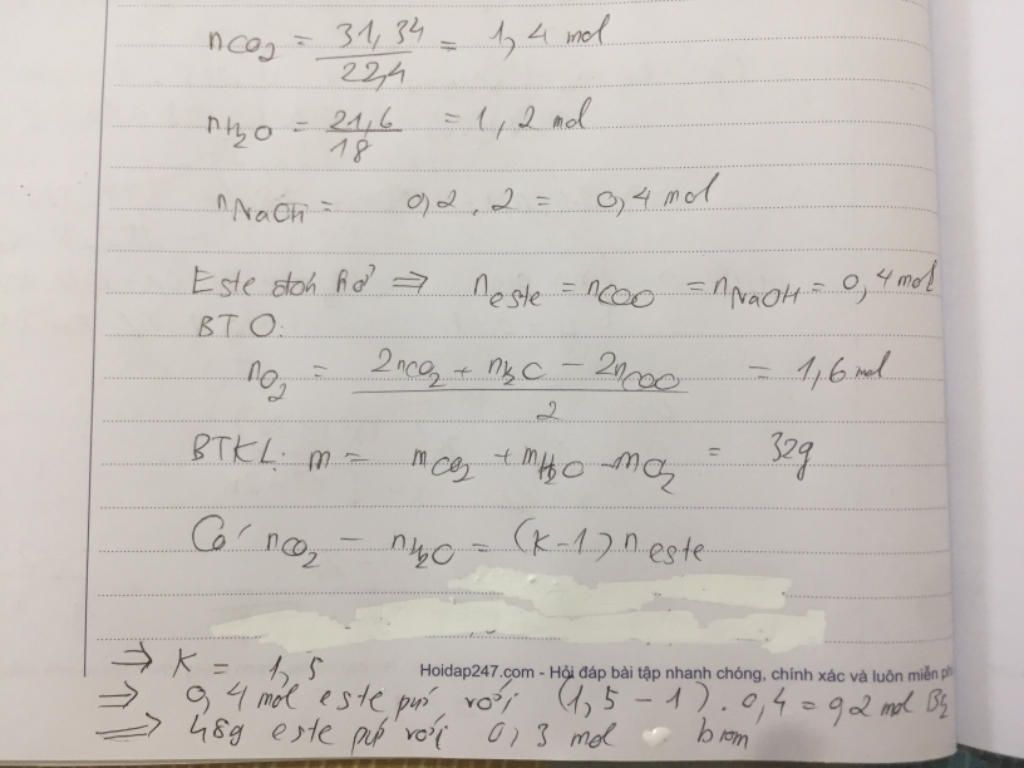 nCO₂ = 31,34 / 22,4 = 1,4 mol
nH₂O = 21,6 / 18 = 1,2 mol
nNaOH = 0,2 . 2 = 0,4 mol
Este đơn hở ⇒ n este = nCOO = nNaOH = 0,4 mol
BT O:
nO₂ = (2nCO₂ + nH₂O - 2nCOO) / 2 = 1,6 mol
BTKL: m = mCO₂ + mH₂O - mO₂ = 32g
Có nCO₂ - nH₂O = (k-1) n este
⇒ K = 1,5
Hoidap247.com - Hỏi đáp bài tập nhanh chóng, chính xác và luôn miễn ph
⇒ 0,4 mol este pứ với (1,5 - 1) . 0,4 = 0,2 mol Br₂
⇒ 48g este pứ với 0,3 mol brom